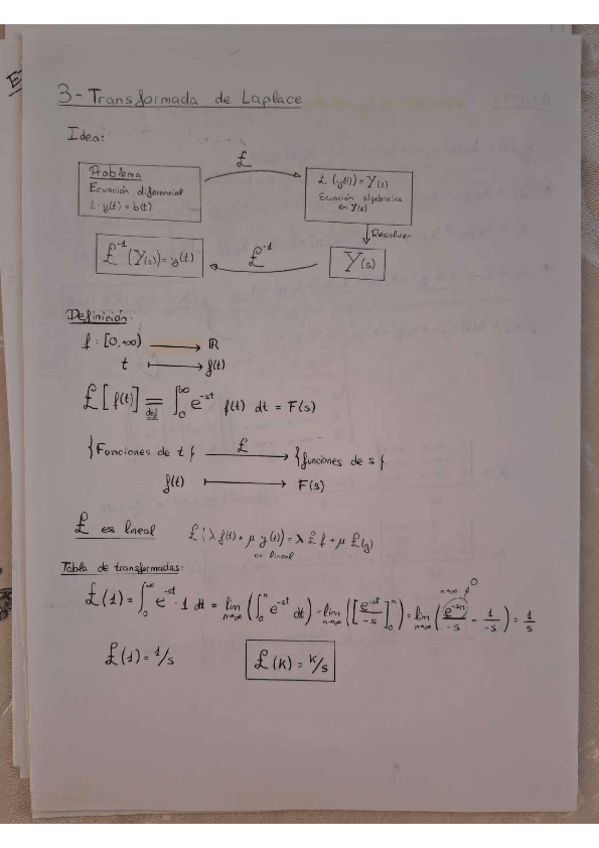 3- Transformada de Laplace
Idea:
£
Problema
Ecuación diferencial
L·y(t) = b(t)
£(y(t)) = Y(s)
Ecuación algebraica
en Y(s)
Resolver
£⁻¹(Y(s)) = y(t)
£⁻¹
Y(s)
Definición:
f: [0,+∞) → ℝ
t ↦ f(t)
£[f(t)] =def ∫₀^∞ e^-st f(t) dt = F(s)
{Funciones de t} £→ {funciones de s}
f(t) ↦ F(s)
£ es lineal £(λ f(t) + μ y(t)) = λ £ f + μ £(g)
es lineal
Tabla de transformadas:
£(1) = ∫₀^∞ e^-st · 1 dt = lim n→∞ (∫₀^n e^-st dt) = lim n→∞ ([e^-st/-s]₀^n) = lim n→∞ (e^-sn/-s - 1/-s) = 1/s
n→∞ 0
£(1) = 1/s
£(K) = K/s